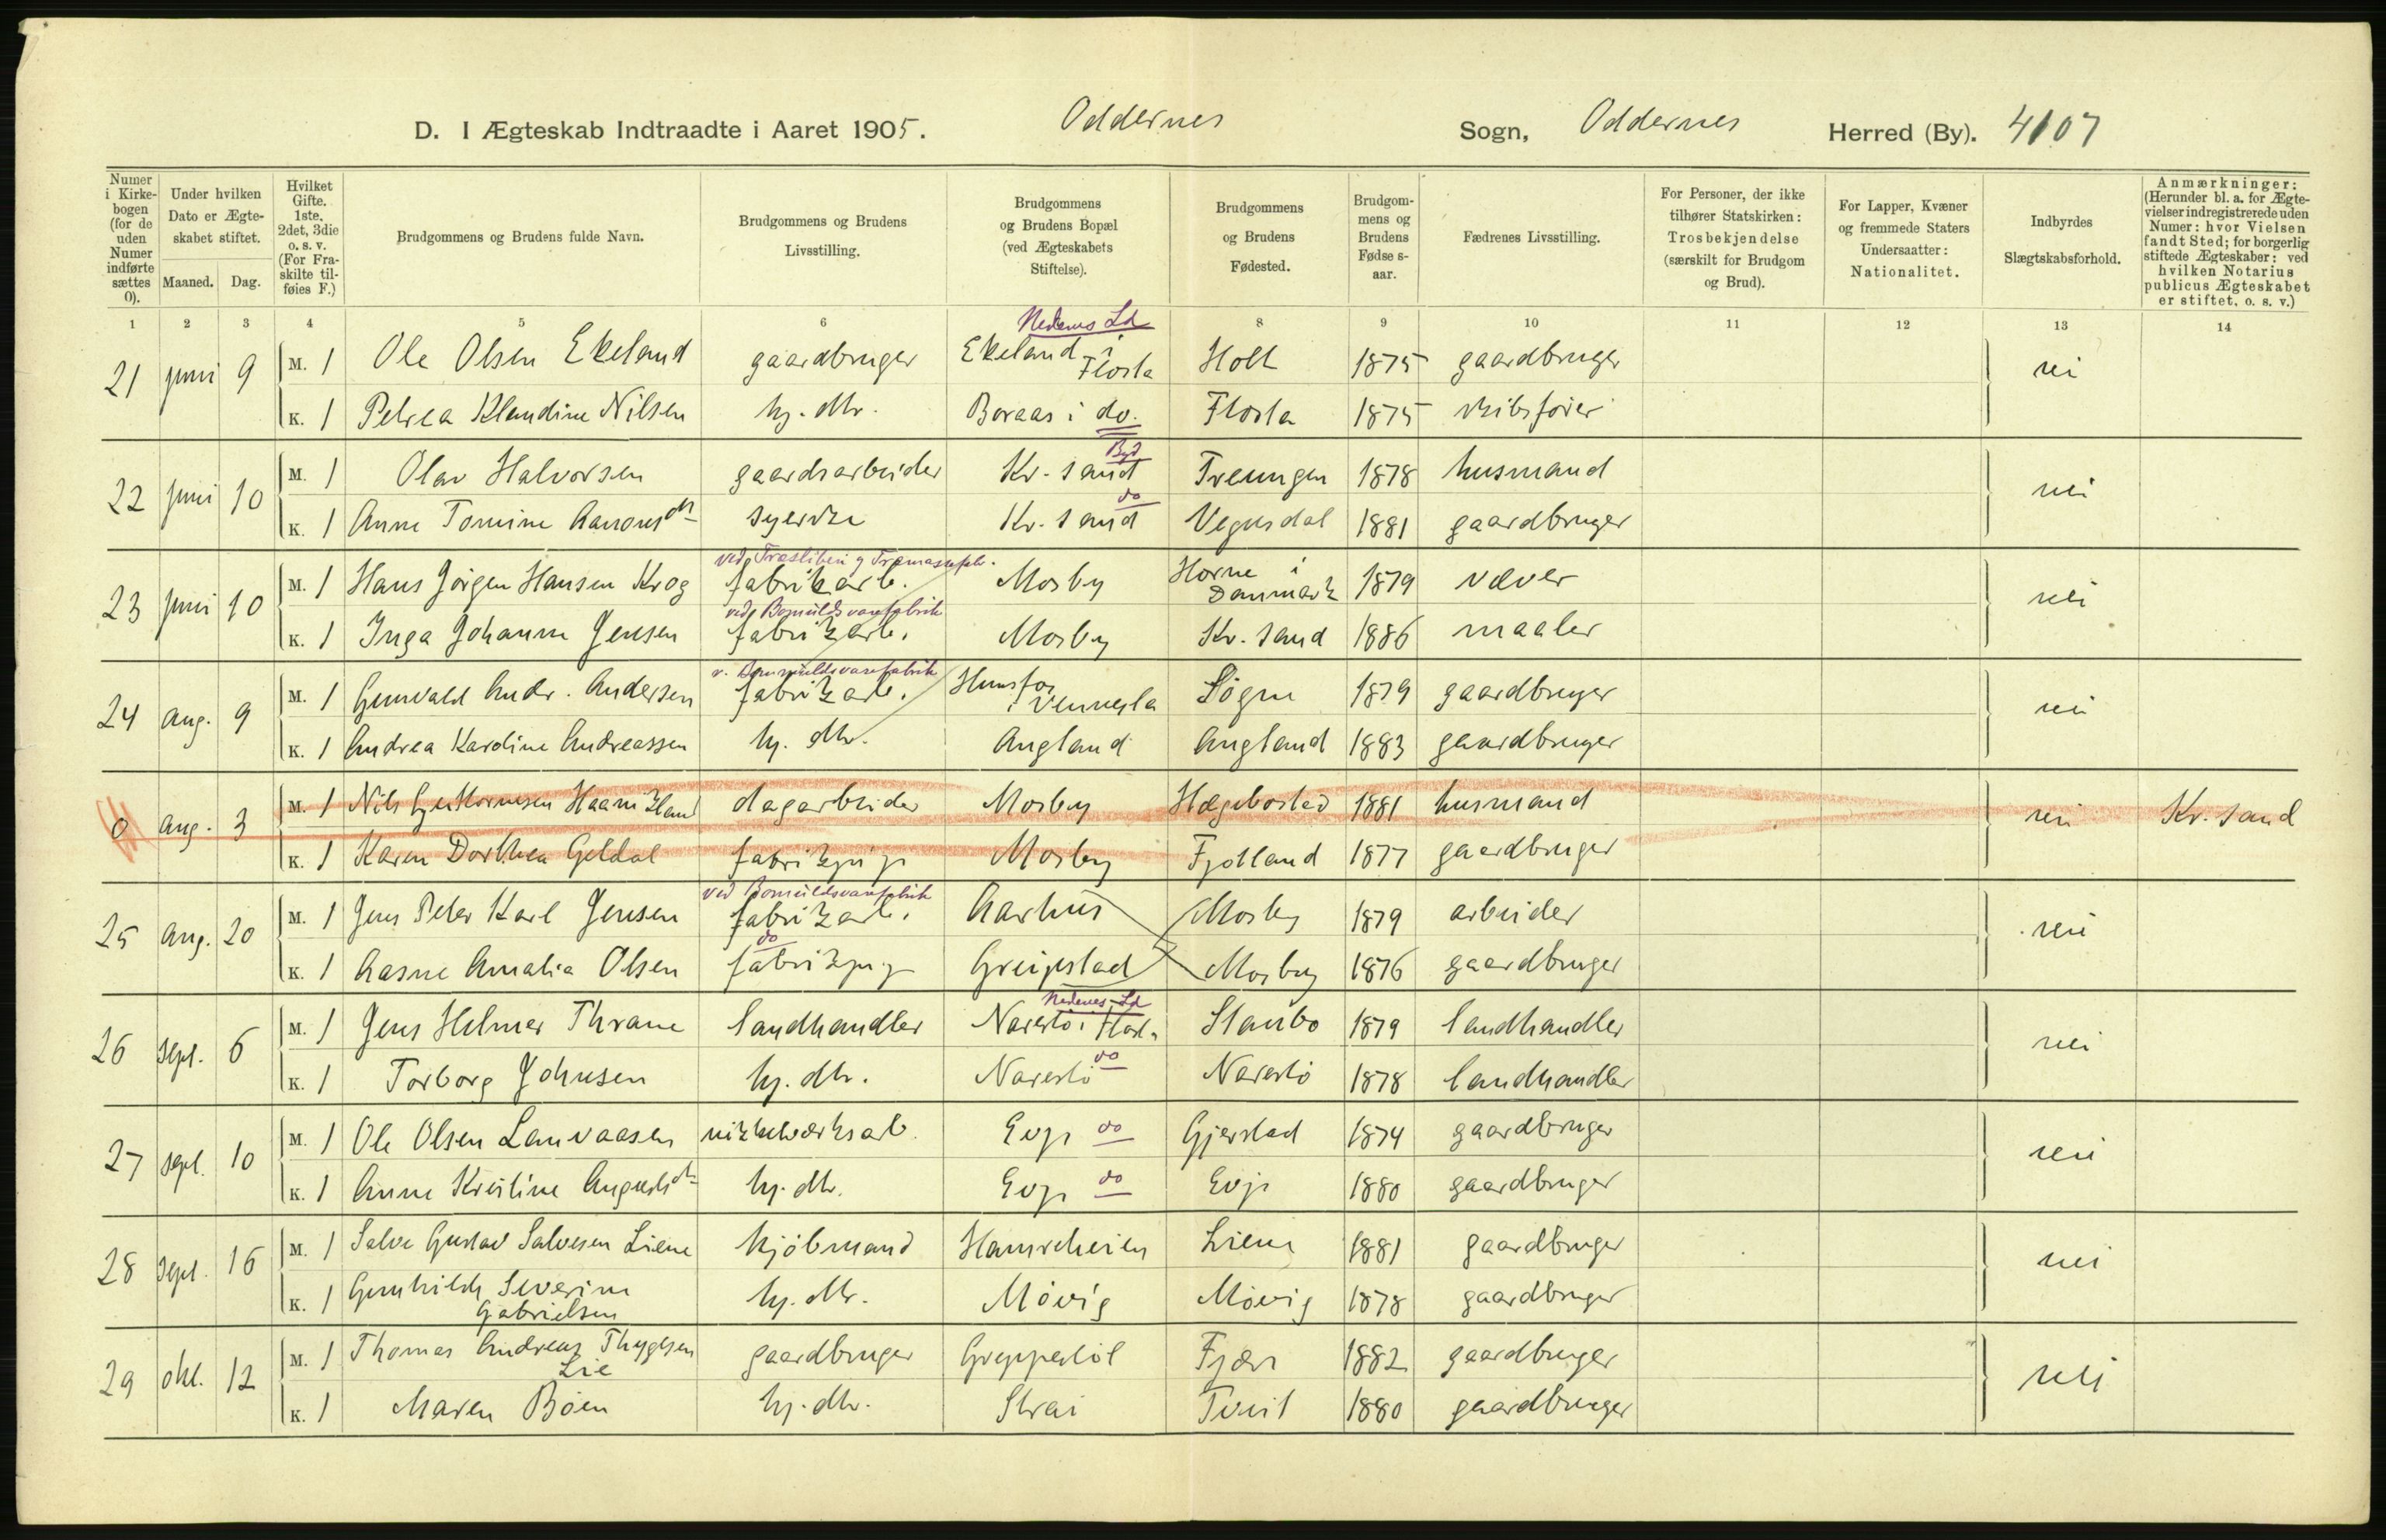 D. I Ægteskab Indtraadte i Aaret 1905. Oddernes Sogn, Oddernes Herred (By). 4107
Numer i Kirkebogen (for de uden Numer indførte sættes 0).
Under hvilken Dato er Ægteskabet stiftet.
Maaned. Dag.
Hvilket Gifte. 1ste, 2det, 3die o. s. v. (For Fraskilte tilføies F.)
Brudgommens og Brudens fulde Navn.
Brudgommens og Brudens Livsstilling.
Brudgommens og Brudens Bopæl (ved Ægteskabets Stiftelse).
Brudgommens og Brudens Fødested.
Brudgommens og Brudens Fødselsaar.
Fædrenes Livsstilling.
For Personer, der ikke tilhører Statskirken: Trosbekjendelse (særskilt for Brudgom og Brud).
For Lapper, Kvæner og fremmede Staters Undersaatter: Nationalitet.
Indbyrdes Slægtskabsforhold.
Anmærkninger: (Herunder bl. a. for Ægtevielser indregistrerede uden Numer: hvor Vielsen fandt Sted; for borgerlig stiftede Ægteskaber: ved hvilken Notarius publicus Ægteskabet er stiftet, o. s. v.)
1 2 3 4 5 6 8 9 10 11 12 13 14
Nedenes Ld
21 juni 9 M. 1 Ole Olsen Ekeland gaardbruger Ekeland i Flosta Holt 1875 gaardbruger nei
K. 1 Petrea Klaudine Nilsen hj. dtr. Boraas i do. Flosta 1875 skibsfører
Byd
22 juni 10 M. 1 Olav Halvorsen gaardsarbeider Kr. sand Treungen 1878 husmand nei
do
K. 1 Anne Tomine Aanonsdtr syerske Kr. sand Vegusdal 1881 gaardbruger
ved Træsliberi og Træmassefabr.
23 juni 10 M. 1 Hans Jörgen Hansen Krog fabrikarb. Mosby Horne i Danmark 1879 væver nei
ved Bomuldsvarefabrik
K. 1 Inga Johanne Jensen fabrikarb. Mosby Kr. sand 1886 maaler
v. Bomuldsvarefabrik
24 aug. 9 M. 1 Gunvald Andr. Andersen fabrikarb. Hunsfos i Vennesla Sögne 1879 gaardbruger nei
K. 1 Andrea Karoline Andreassen hj. dtr. Augland Augland 1883 gaardbruger
0 aug. 3 M. 1 Nils Guttormsen Haanikland dagarbeider Mosby Hægebostad 1881 husmand nei Kr. sand
K. 1 Karen Dorthea Geldal fabrikpige Mosby Fjotland 1877 gaardbruger
ved Bomuldsvarefabrik
25 aug. 20 M. 1 Jens Peter Karl Jensen fabrikarb. Aarhus Mosby 1879 arbeider nei
do
K. 1 Aasne Amalia Olsen fabrikpige Greipstad Mosby 1876 gaardbruger
Nedenes Ld
26 sept. 6 M. 1 Jens Helmer Thrane landhandler Narestö i Flosta Staubo 1879 landhandler nei
do
K. 1 Torborg Johnsen hj. dtr. Narestö Narestö 1878 landhandler
27 sept. 10 M. 1 Ole Olsen Lauvaasen nikkelværksarb. Evje do Gjerstad 1874 gaardbruger nei
K. 1 Anne Kristine Augustsdtr hj. dtr. Evje do Evje 1880 gaardbruger
28 sept. 16 M. 1 Salve Gustav Salvesen Liene kjöbmand Hamreheien Liene 1881 gaardbruger nei
K. 1 Gunhild Severine Gabrielsen hj. dtr. Mövig Mövig 1878 gaardbruger
29 okt. 12 M. 1 Thomas Andreas Thygesen Lie gaardbruger Greppestöl Fjære 1882 gaardbruger nei
K. 1 Maren Böen hj. dtr. Strai Tveit 1880 gaardbruger